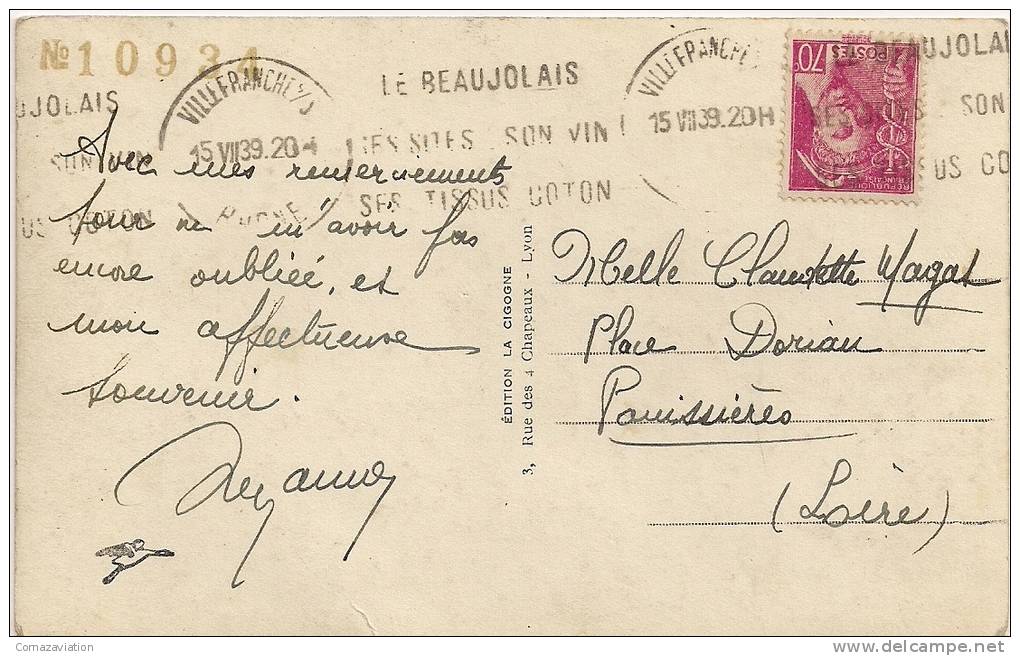 № 10934
VILLEFRANCHE S/S
15 VII 39. 20H
RHONE
LE BEAUJOLAIS
SES SITES . SON VIN !
SES TISSUS COTON
VILLEFRANCHE
15 VII 39. 20H
BEAUJOLAI
SES SITES . SON
TISSUS CO
UJOLAIS
SON VIN
US COTON
70c
POSTES
REPUBLIQUE
FRANCAISE
Avec mes remerciements
pour ne m'avoir pas
encore oubliée, et
mon affectueux
souvenir.
Suzanne
ÉDITION LA CIGOGNE
3, Rue des 4 Chapeaux - Lyon
Melle Claudette Magat
Place Dorian
Panissières
(Loire)
Comazaviation
www.delcampe.net